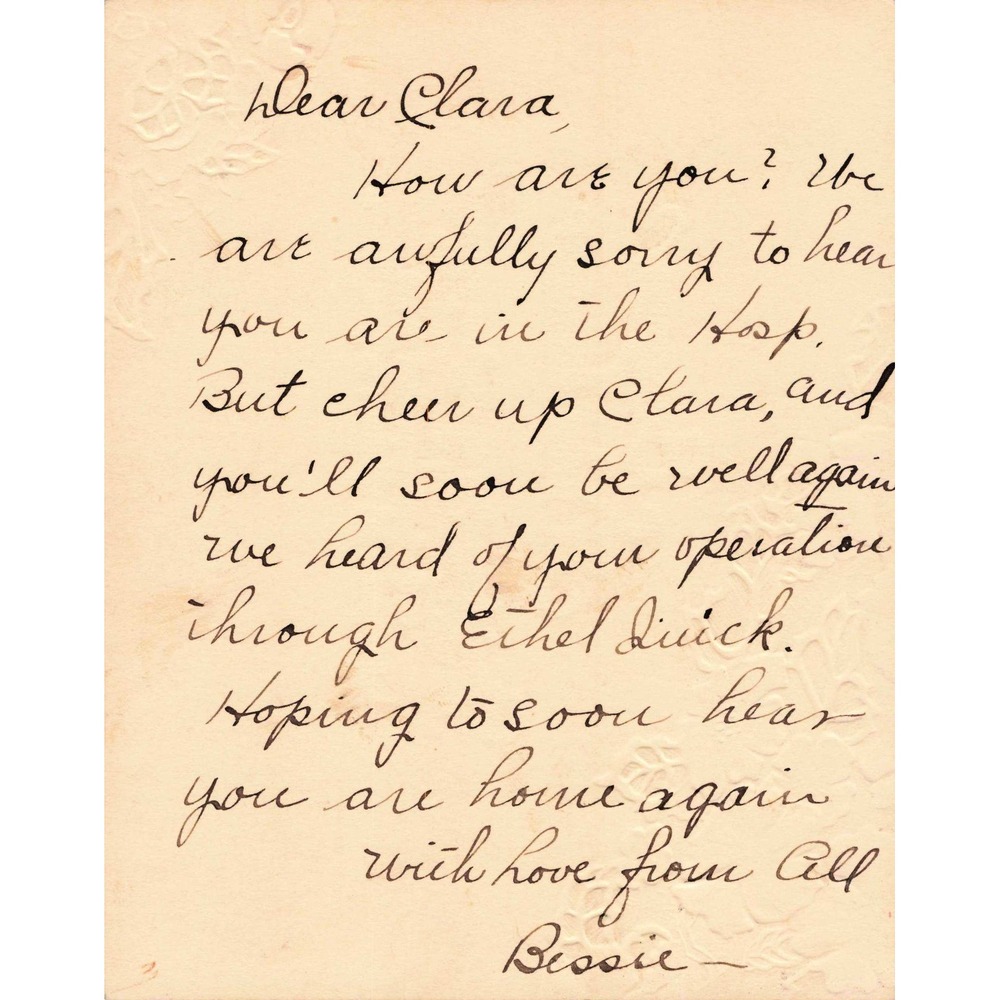 Dear Clara,
How are you? We
are awfully sorry to hear
you are in the Hosp.
But cheer up Clara, and
you'll soon be well again
we heard of your operation
through Ethel Quick.
Hoping to soon hear
you are home again
with love from All
Bessie —